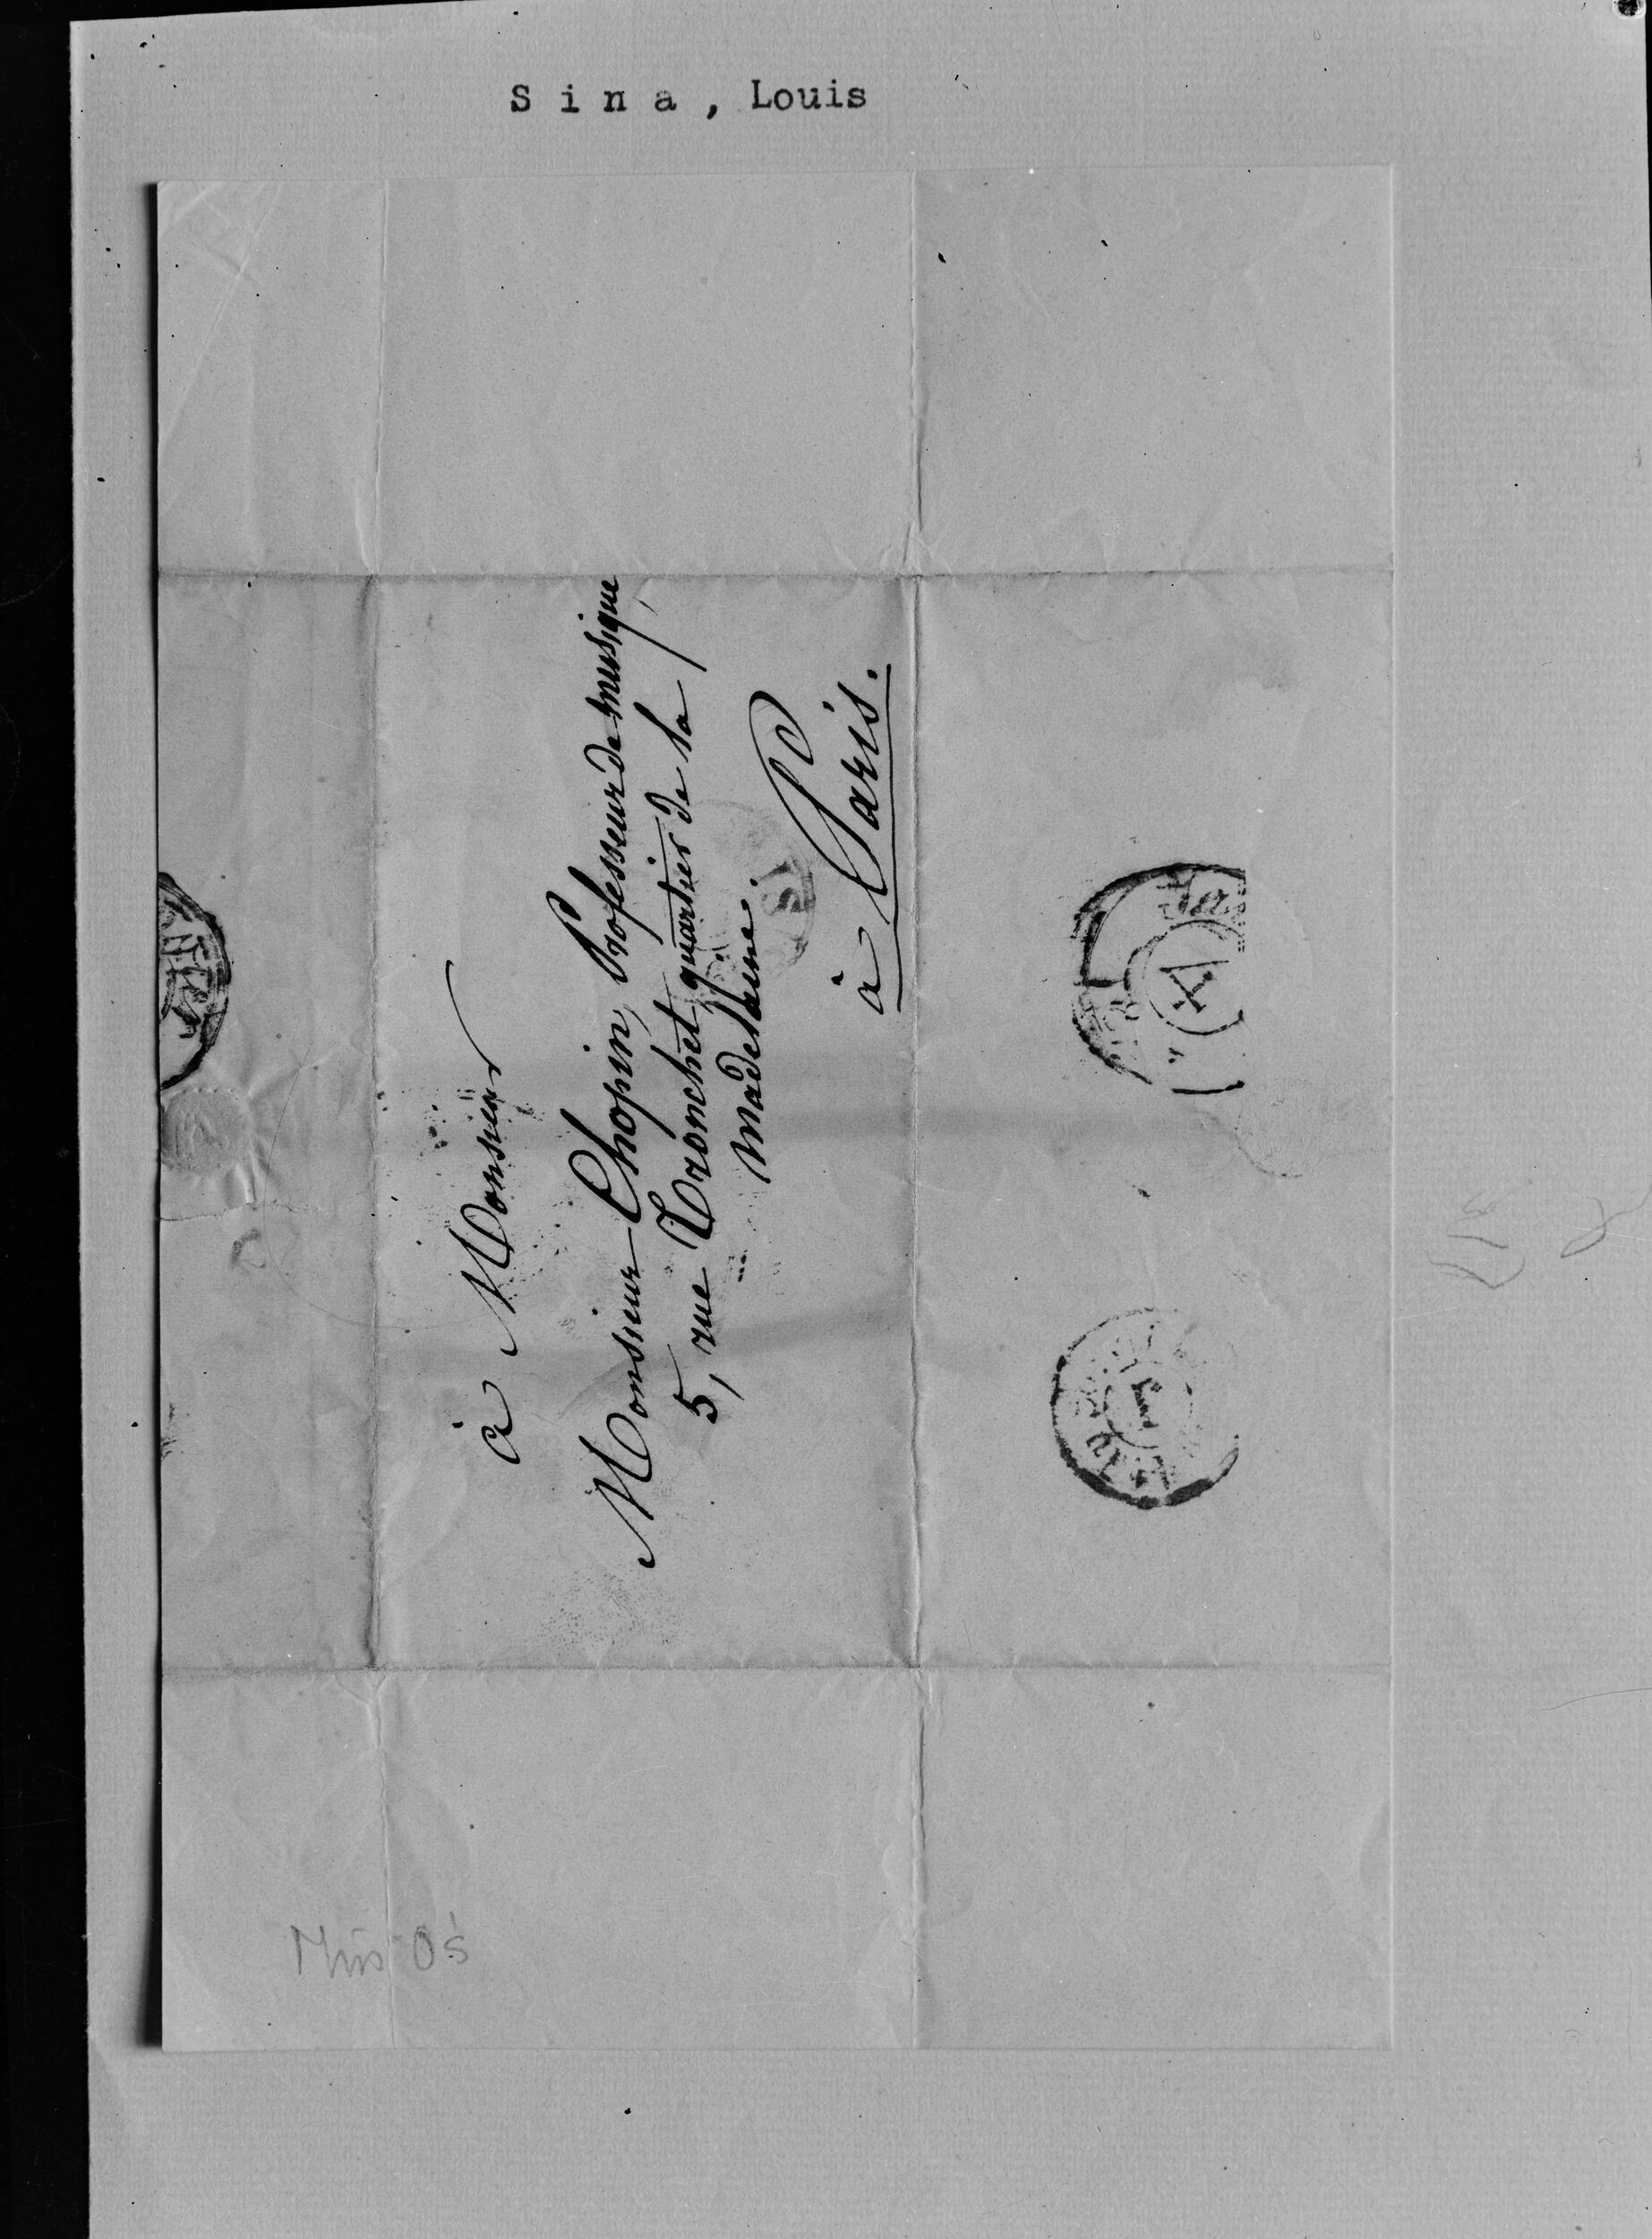 Sina, Louis
à Monsieur
Monsieur Chopin, Professeur de musique
5, rue Tronchet quartier de la
madelaine.
à Paris.
A